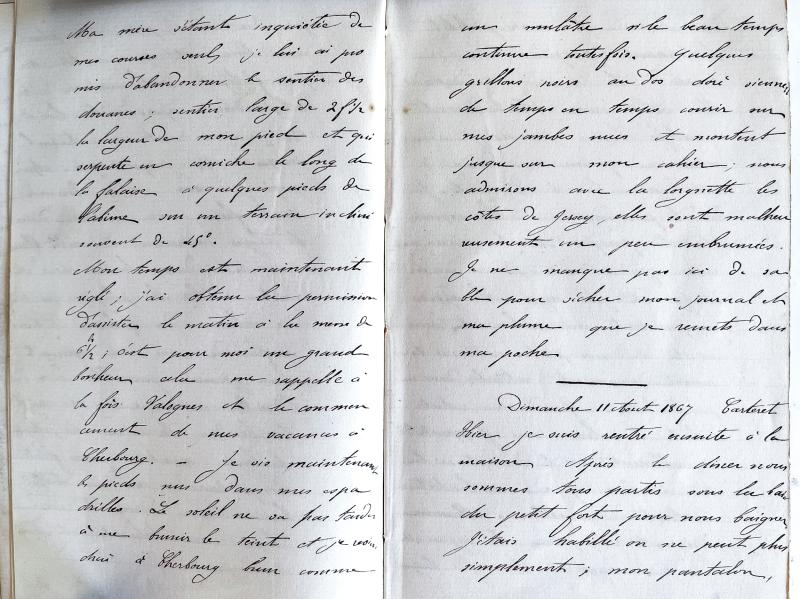 Ma mère s'étant inquiétée de
mes courses seul, je lui ai pro
mis d'abandonner le sentier des
douanes ; sentier large de 2 f 1/2
la largeur de mon pied et qui
serpente en corniche le long de
la falaise à quelques pieds de
l'abîme sur un terrain incliné
souvent de 45°.
Mon temps est maintenant
réglé ; j'ai obtenu la permission
d'assister le matin à la messe de
6h 1/2 ; c'est pour moi un grand
bonheur cela me rappelle à
la fois Valognes et le commen
cement de mes vacances à
Cherbourg. — Je vis maintenant
les pieds nus dans mes espa
drilles. Le soleil ne va pas tarder
à me brunir le teint et je revien
drai à Cherbourg brun comme
un mulâtre si le beau temps
continue toutefois. Quelques
grillons noirs au dos doré viennent
de temps en temps courir sur
mes jambes nues et montent
jusque sur mon cahier ; nous
admirons avec la lorgnette les
côtes de Jersey, elles sont malheu
reusement un peu embrumées.
Je ne manque pas ici de sa
ble pour sécher mon journal et
ma plume que je remets dans
ma poche
Dimanche 11 Aout 1867 Carteret
Hier je suis rentré ensuite à la
maison Après le diner nous
sommes tous partis sous la baie
du petit fort pour nous baigner
J'étais habillé on ne peut plus
simplement ; mon pantalon,